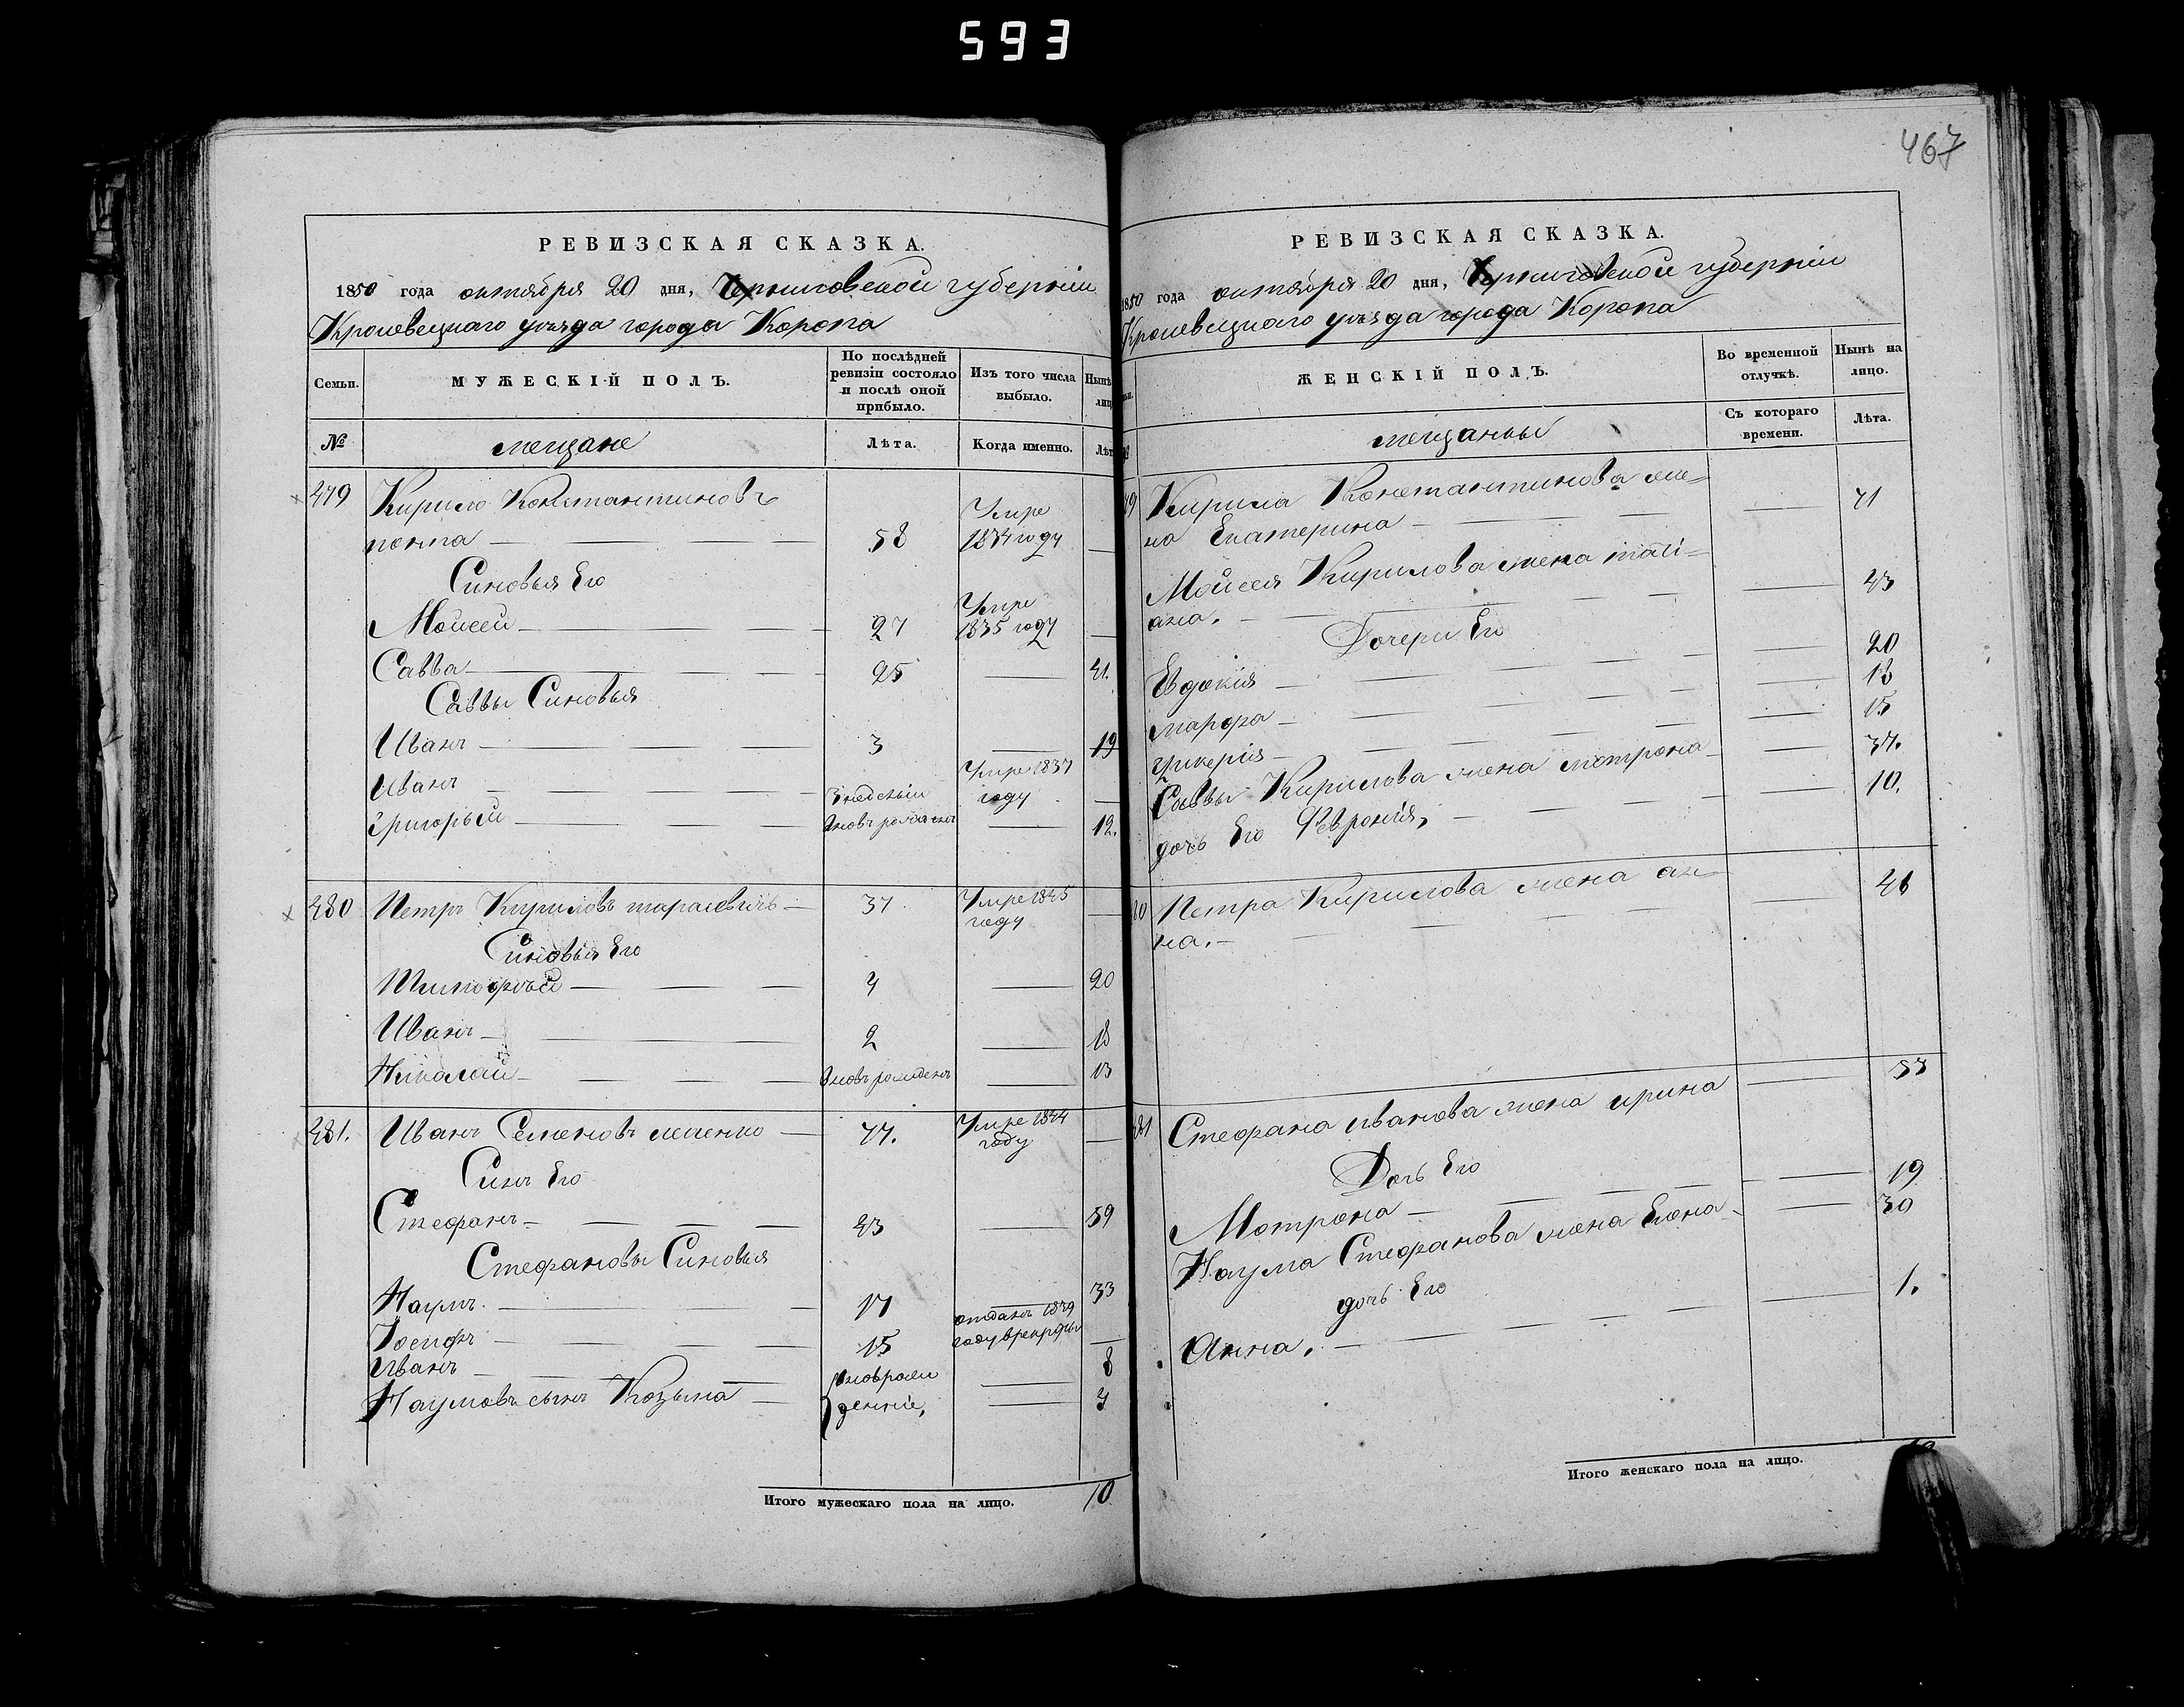 593
467
РЕВИЗСКАЯ СКАЗКА.
1850 года октября 20 дня, Черниговской губерніи
Кролевецкаго уѣзда города Коропа
Семьи.
МУЖЕСКІЙ ПОЛЪ.
По послѣдней ревизіи состояло и послѣ оной прибыло.
Изъ того числа выбыло.
Нынѣ лиц
№
мещане
Лѣта.
Когда именно.
Лѣт
479 Кирило Константиновъ
58 Умре 1834 году
Синовья Его
Моисей 27 Умре 1835 году
Савва 25 41.
Саввы Синовья
Иванъ 3 19
Иванъ 3 недельи Умре 1837 году
Григорьй вновь рожденъ 12.
480 Петръ Кириловъ 37 Умре 1845 году
Синовья Его
Тимофѣй 4 20
Иванъ 2 18
Николай вновь рожденъ 13
481. Иванъ Семеновъ 77. Умре 1844 году
Синъ Его
Стефанъ 43 59
Стефановы Синовья
Наумъ 17 33
Іосифъ 15 отданъ 1839 году в рекруты
Иванъ 8
Наумовъ сынъ Козьма вновь рожденніе, 3
Итого мужескаго пола на лицо. 10
РЕВИЗСКАЯ СКАЗКА.
1850 года октября 20 дня, Черниговской губерніи
Кролевецкаго уѣзда города Коропа
ЖЕНСКІЙ ПОЛЪ.
Во временной отлучкѣ.
Нынѣ на лицо.
мещанкы
Съ котораго времени.
Лѣта.
79 Кирила Константинова же=
на Екатерина 71
Моисея Кирилова жена таті=
ана. 43
Дочери Его
Евдокія 20
марфа 18
гликерія 15
Саввы Кирилова жена мотрона 37.
дочь Его Февронія, 10.
80 Петра Кирилова жена ан=
на. 48
481 Стефана иванова жена ирина 57
Дочь Его
Мотрона 19
Наума Стефанова жена Елена 30
дочь Его
Анна. 1.
Итого женскаго пола на лицо.